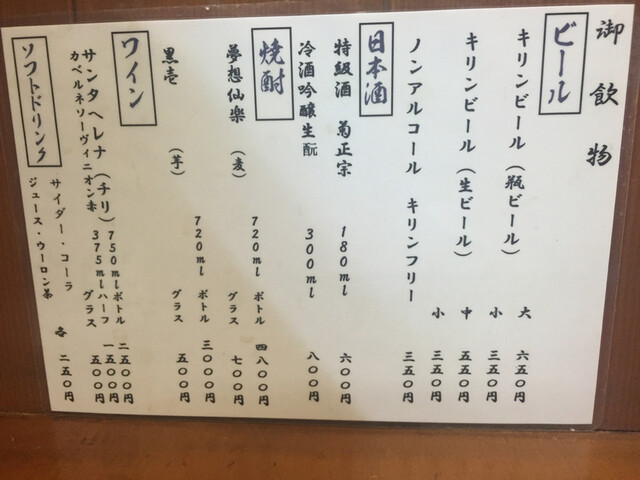 御飲物
ビール
キリンビール(瓶ビール) 大 六五〇円
小 三五〇円
キリンビール(生ビール) 中 五五〇円
小 三五〇円
ノンアルコール キリンフリー 三五〇円
日本酒
特級酒 菊正宗 180ml 六〇〇円
冷酒吟醸生酛 300ml 八〇〇円
焼酎
夢想仙楽(麦) 720ml ボトル 四八〇〇円
グラス 七〇〇円
黒壱(芋) 720ml ボトル 三〇〇〇円
グラス 五〇〇円
ワイン
サンタヘレナ(チリ) 750mlボトル 二五〇〇円
カベルネソーヴィニオン赤 375mlハーフ 一五〇〇円
グラス 五〇〇円
ソフトドリンク
サイダー・コーラ
ジュース・ウーロン茶 各 二五〇円